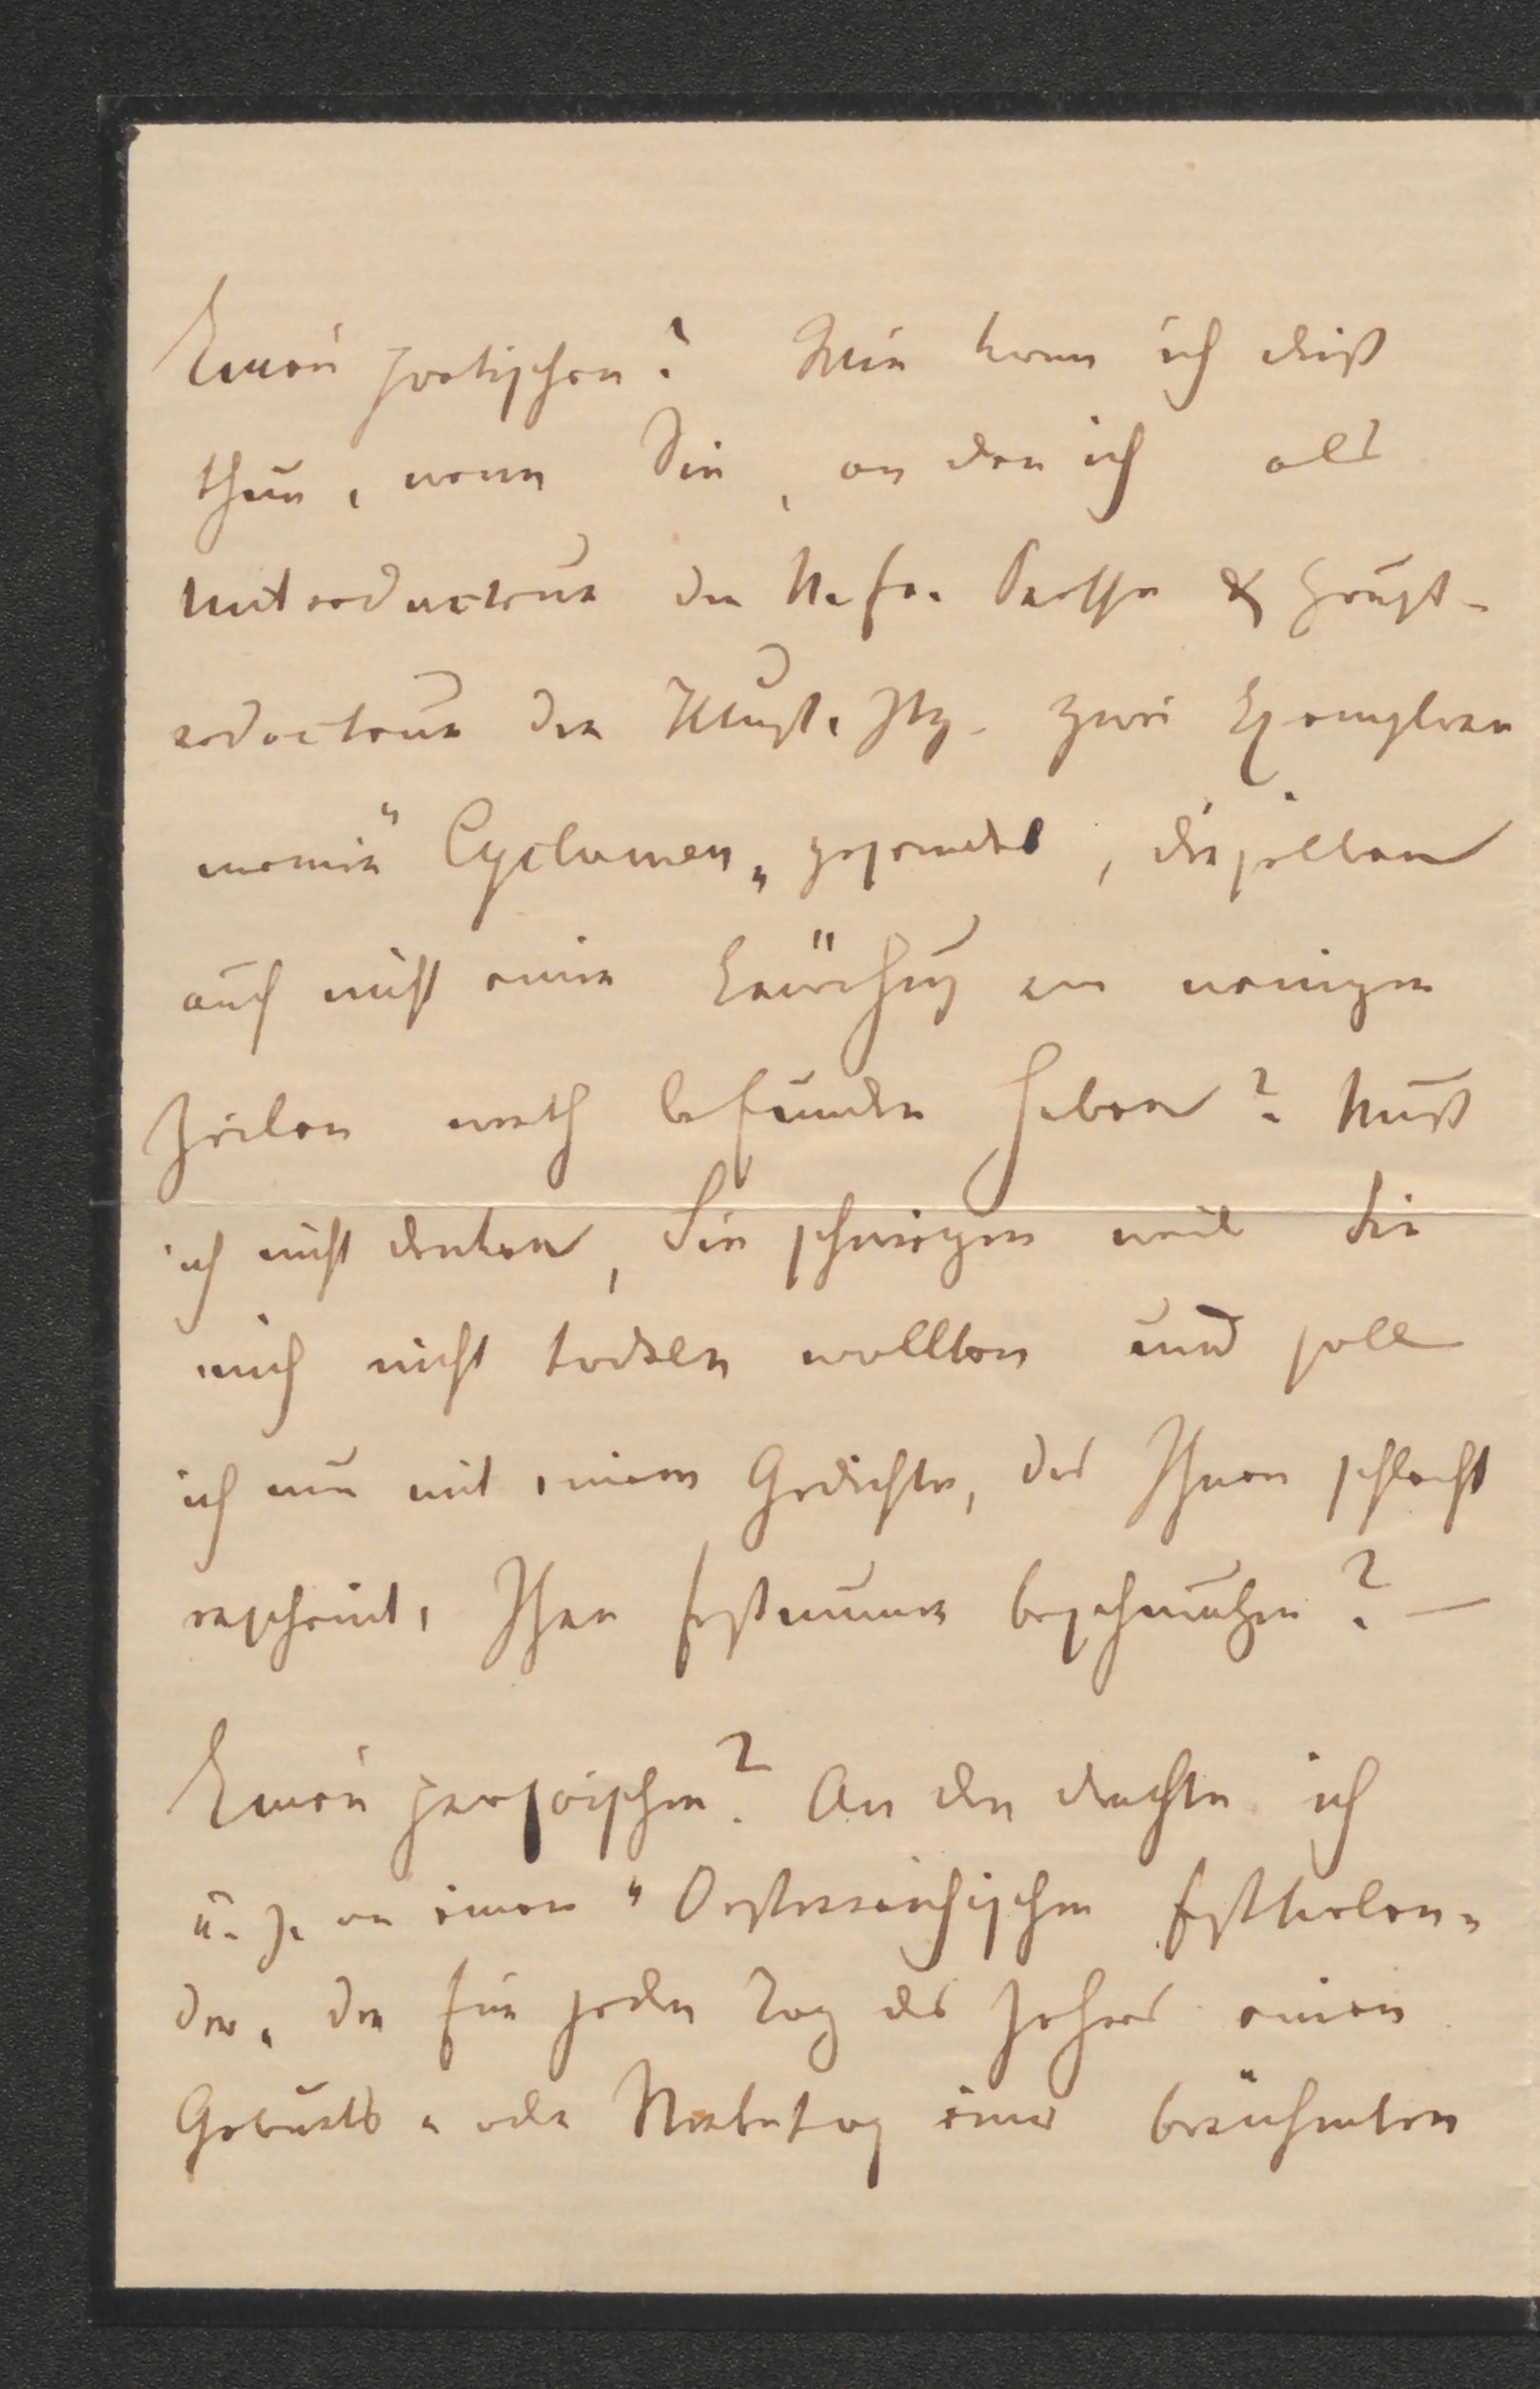 Einen poetischen? Wie kann ich dieß
thun, wenn Sie, an den ich als
Mitredacteur der N. fr. Presse & Haupt-
redacteur der Illust. Ztg. zwei Exemplare
meiner "Cyclamen" gesendet, dieselben
auch nicht einer Erwähnung in wenigen
Zeilen werth befunden haben? Muß
ich nicht denken, Sie schwiegen weil Sie
mich nicht tadeln wollten und soll
ich nun mit einem Gedichte, das Ihnen schlecht
erscheint, Ihre Festnummer beschmutzen? —
Einen prosaischen? An den dachte ich
u. z. an einen "Oesterreichischen Festkalen-
der" der für jeden Tag des Jahres einen
Geburts- oder Sterbetag eines berühmten